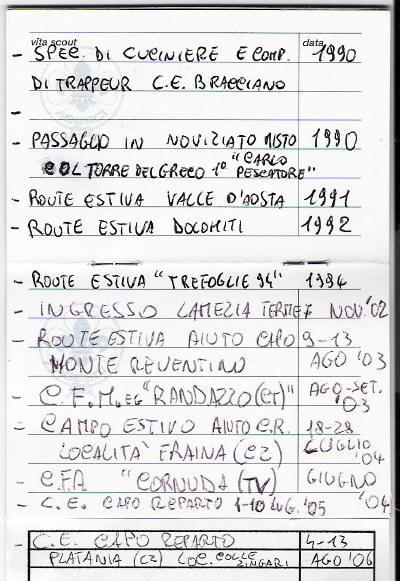 vita scout data
- SPEC. DI CUCINIERE E COMP. 1990
DI TRAPPEUR C.E. BRACCIANO
-
- PASSAGGIO IN NOVIZIATO MISTO 1990
COL TORRE DEL GRECO 1° "CARLO PESCATORE"
- ROUTE ESTIVA VALLE D'AOSTA 1991
- ROUTE ESTIVA DOLOMITI 1992
- ROUTE ESTIVA "TREFOGLIE 94" 1994
- INGRESSO LAMEZIA TERME NOV. '02
- ROUTE ESTIVA AIUTO CAPO 9-13
MONTE REVENTINO AGO '03
- C.F.M. EG "RANDAZZO (CT)" AGO-SET. '03
- CAMPO ESTIVO AIUTO C.R. 18-28
LOCALITA' FRAINA (CZ) LUGLIO '04
- C.F.A "CORNUDA (TV) GIUGNO '04
- C.E. CAPO REPARTO 1-10 LUG. '05
- C.E. CAPO REPARTO 4-13
PLATANIA (CZ) LOC. COLLE ZINGARI AGO '06